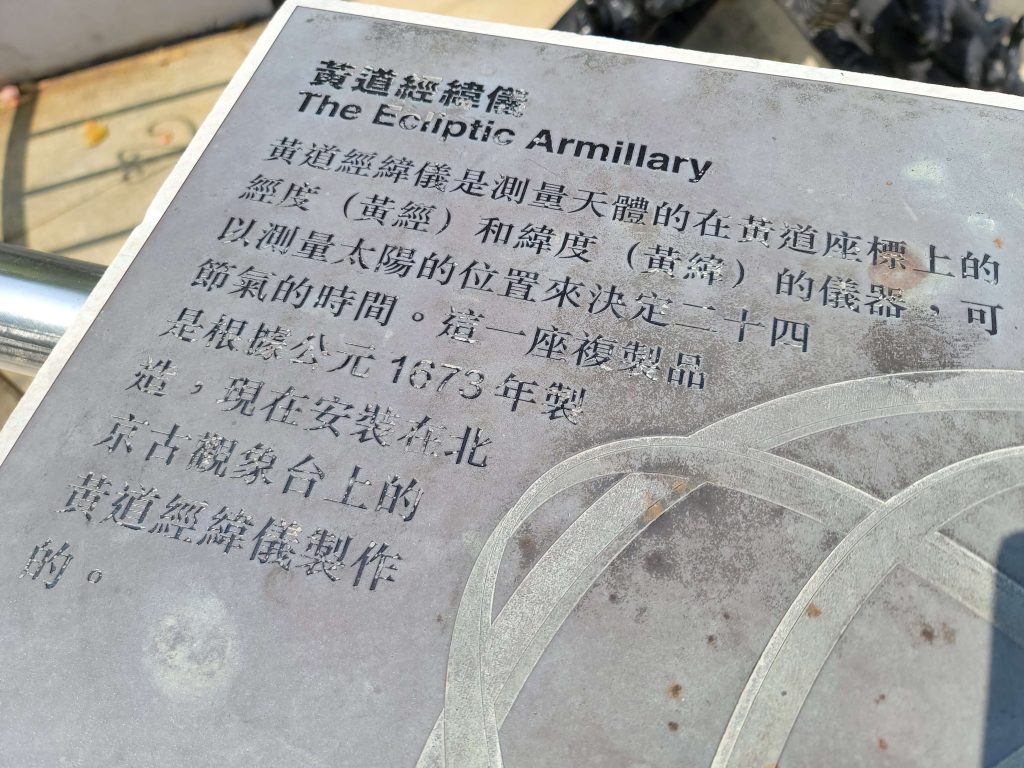 黃道經緯儀
The Ecliptic Armillary
黃道經緯儀是測量天體的在黃道座標上的
經度（黃經）和緯度（黃緯）的儀器，可
以測量太陽的位置來決定二十四
節氣的時間。這一座複製品
是根據公元1673年製
造，現在安裝在北
京古觀象台上的
黃道經緯儀製作
的。